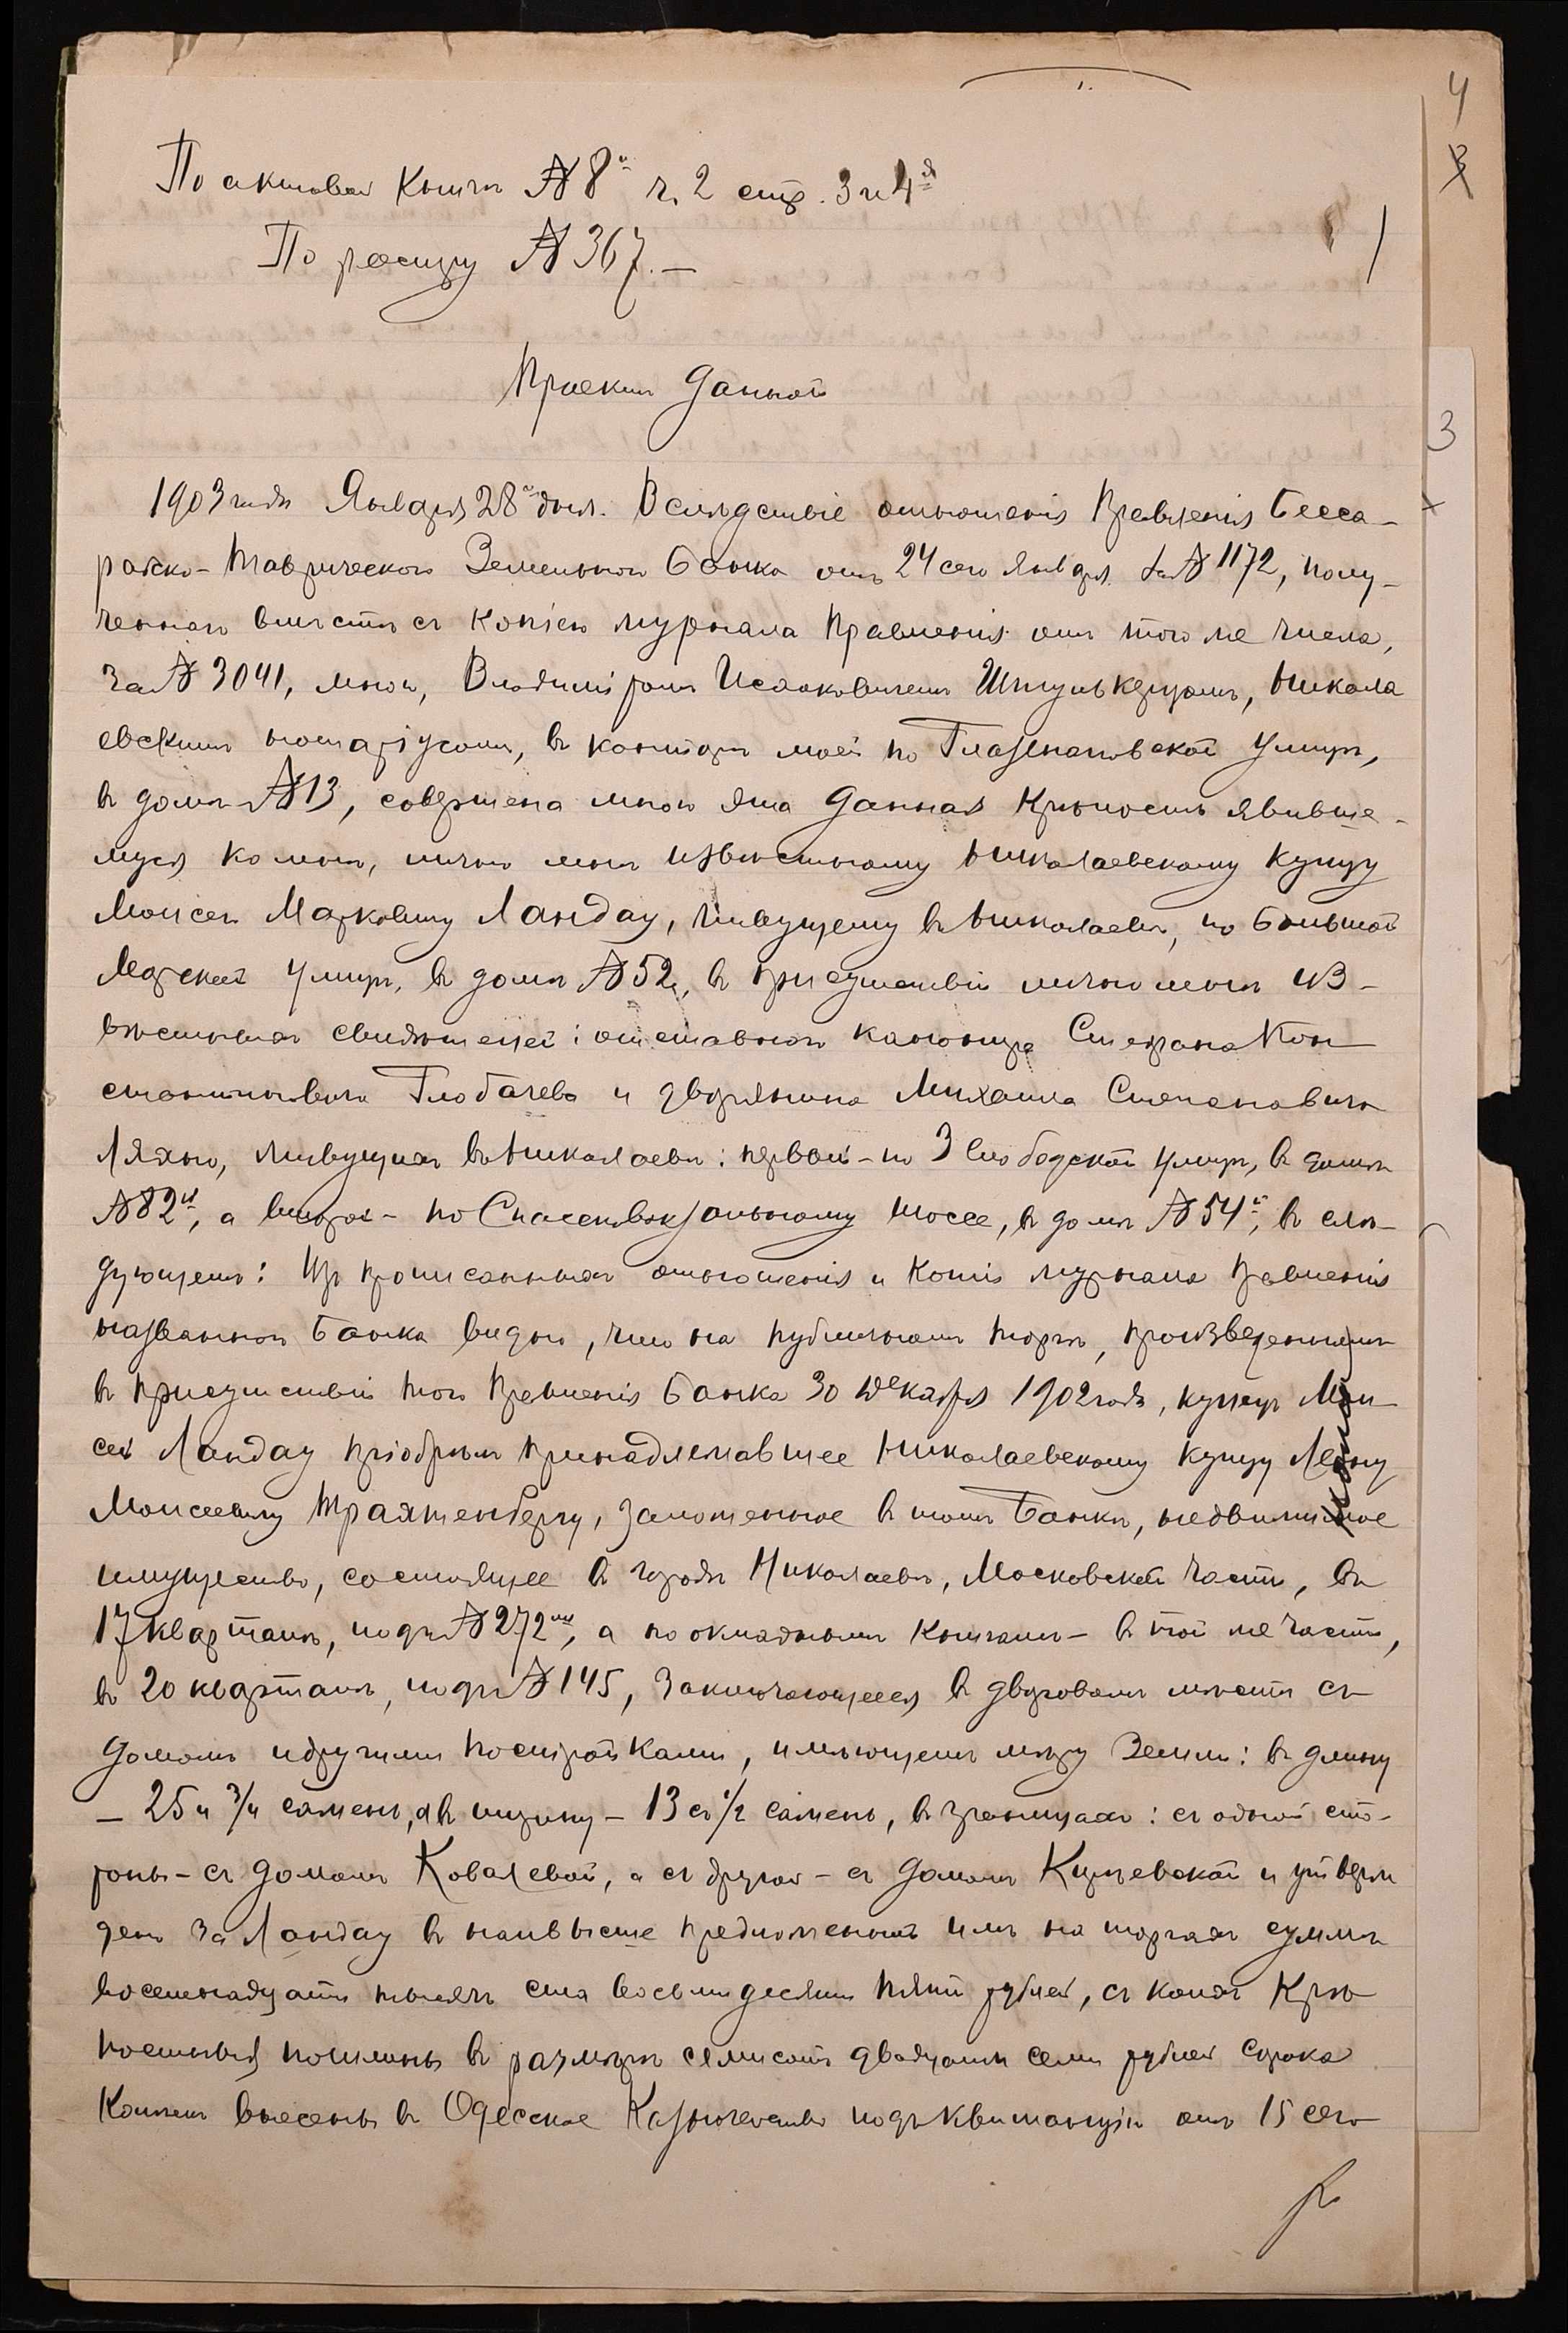 4
3
По актовой книгѣ № 8й ч. 2 стр. 3 и 4я
По реестру № 367. —
Проектъ данной
3
1903 года Января 28го дня. Вслѣдствіе отношенія Правленія Бесса-
рабско-Таврическаго Земельнаго Банка отъ 24 сего Января за № 1172, полу-
ченнаго вмѣстѣ съ копіею журнала Правленія отъ того же числа,
за № 3041, мною, Владиміромъ Исааковичемъ Штулькерцомъ, Никола
евскимъ нотаріусомъ, въ конторѣ моей по Глазенаповской улицѣ,
въ домѣ № 13, совершена мною эта данная крѣпость явивше-
муся ко мнѣ, лично мнѣ извѣстному Николаевскому купцу
Моисею Марковичу Ландау, живущему въ Николаевѣ, по Большой
Морской улицѣ, въ домѣ № 52, въ присутствіи лично мнѣ из-
вѣстныхъ свидѣтелей: отставного канонира Стефана Кон-
стантиновича Глобачева и дворянина Михаила Степановича
Ляхно, живущихъ въ Николаевѣ: первый - по 3 Слободской улицѣ, въ домѣ
№ 82й, а второй - по Спассковокзальному шоссе, въ домѣ № 54й, въ слѣ-
дующемъ: Изъ прописанныхъ отношенія и копіи журнала Правленія
названнаго Банка видно, что на публичномъ торгѣ, произведенномъ
въ присутствіи того Правленія Банка 30 Декабря 1902 года, купецъ Мои-
сей Ландау пріобрѣлъ принадлежавшее Николаевскому купцу Леону
Моисеевичу Трахтенбергу, заложенное въ томъ Банкѣ, недвижимое
имущество, состоящее въ городѣ Николаевѣ, Московской части, въ
17 кварталѣ, подъ № 272мъ, а по окладнымъ книгамъ - въ той же части,
въ 20 кварталѣ, подъ № 145, заключающееся въ дворовомъ мѣстѣ съ
домомъ и другими постройками, имѣющемъ мѣру земли: въ длину
- 25 и 3/4 сажень, а въ ширину - 13 съ 1/2 сажень, въ границахъ: съ одной сто-
роны - съ домомъ Ковалевой, а съ другой - съ домомъ Кирѣевской и утверж
дено за Ландау въ наивысше предложенной имъ на торгахъ суммѣ
восемнадцати тысячъ ста восьмидесяти пяти рублей, съ коихъ крѣ
постныя пошлины въ размѣрѣ семисотъ двадцати семи рублей сорока
копѣекъ внесены въ Одесское Казначейство подъ квитанцію отъ 15 сего